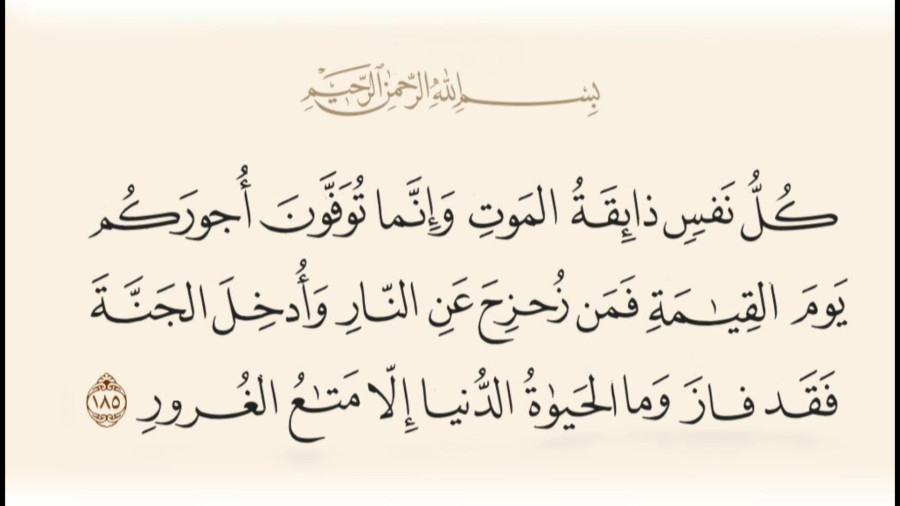 بِسْمِ اللهِ الرَّحْمٰنِ الرَّحِيْمِ
كُلُّ نَفسٍ ذائِقَةُ المَوتِ وَإِنَّما تُوَفَّونَ أُجورَكُم
يَومَ القِيٰمَةِ فَمَن زُحزِحَ عَنِ النّارِ وَأُدخِلَ الجَنَّةَ
فَقَد فازَ وَما الحَيوٰةُ الدُّنيا إِلّا مَتٰعُ الغُرورِ ١٨٥